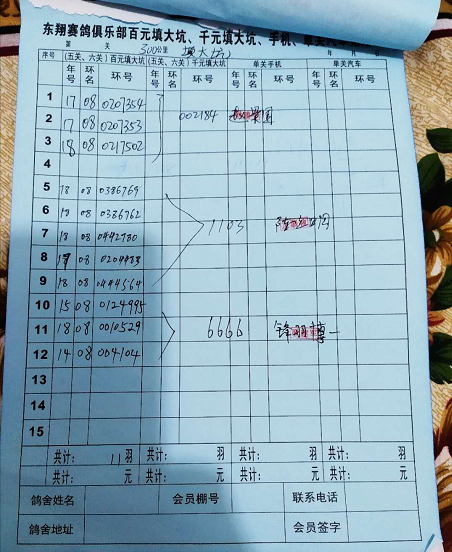 东翔赛鸽俱乐部百元填大坑、千元填大坑、手机、单关汽车
第 关 300公里 填大坑 年 月 日
序号 (五关、六关)百元填大坑 (五关、六关)千元填大坑 单关手机 单关汽车
年号 环名 环号 年号 环名 环号 年号 环名 环号 年号 环名 环号
1 17 08 0207354
2 17 08 0207353 002184
3 18 08 0217502
4
5 18 08 0386769
6 18 08 0386762
7 18 08 0442780 1103
8 08
9 18 08 0444564
10 15 08 0124995
11 18 08 0010529 6666
12 14 08 004104
13
14
15
共计: 11羽 共计: 羽 共计: 羽 共计: 羽
共计: 元 共计: 元 共计: 元 共计: 元
鸽舍姓名 会员棚号 联系电话
鸽舍地址 会员签字